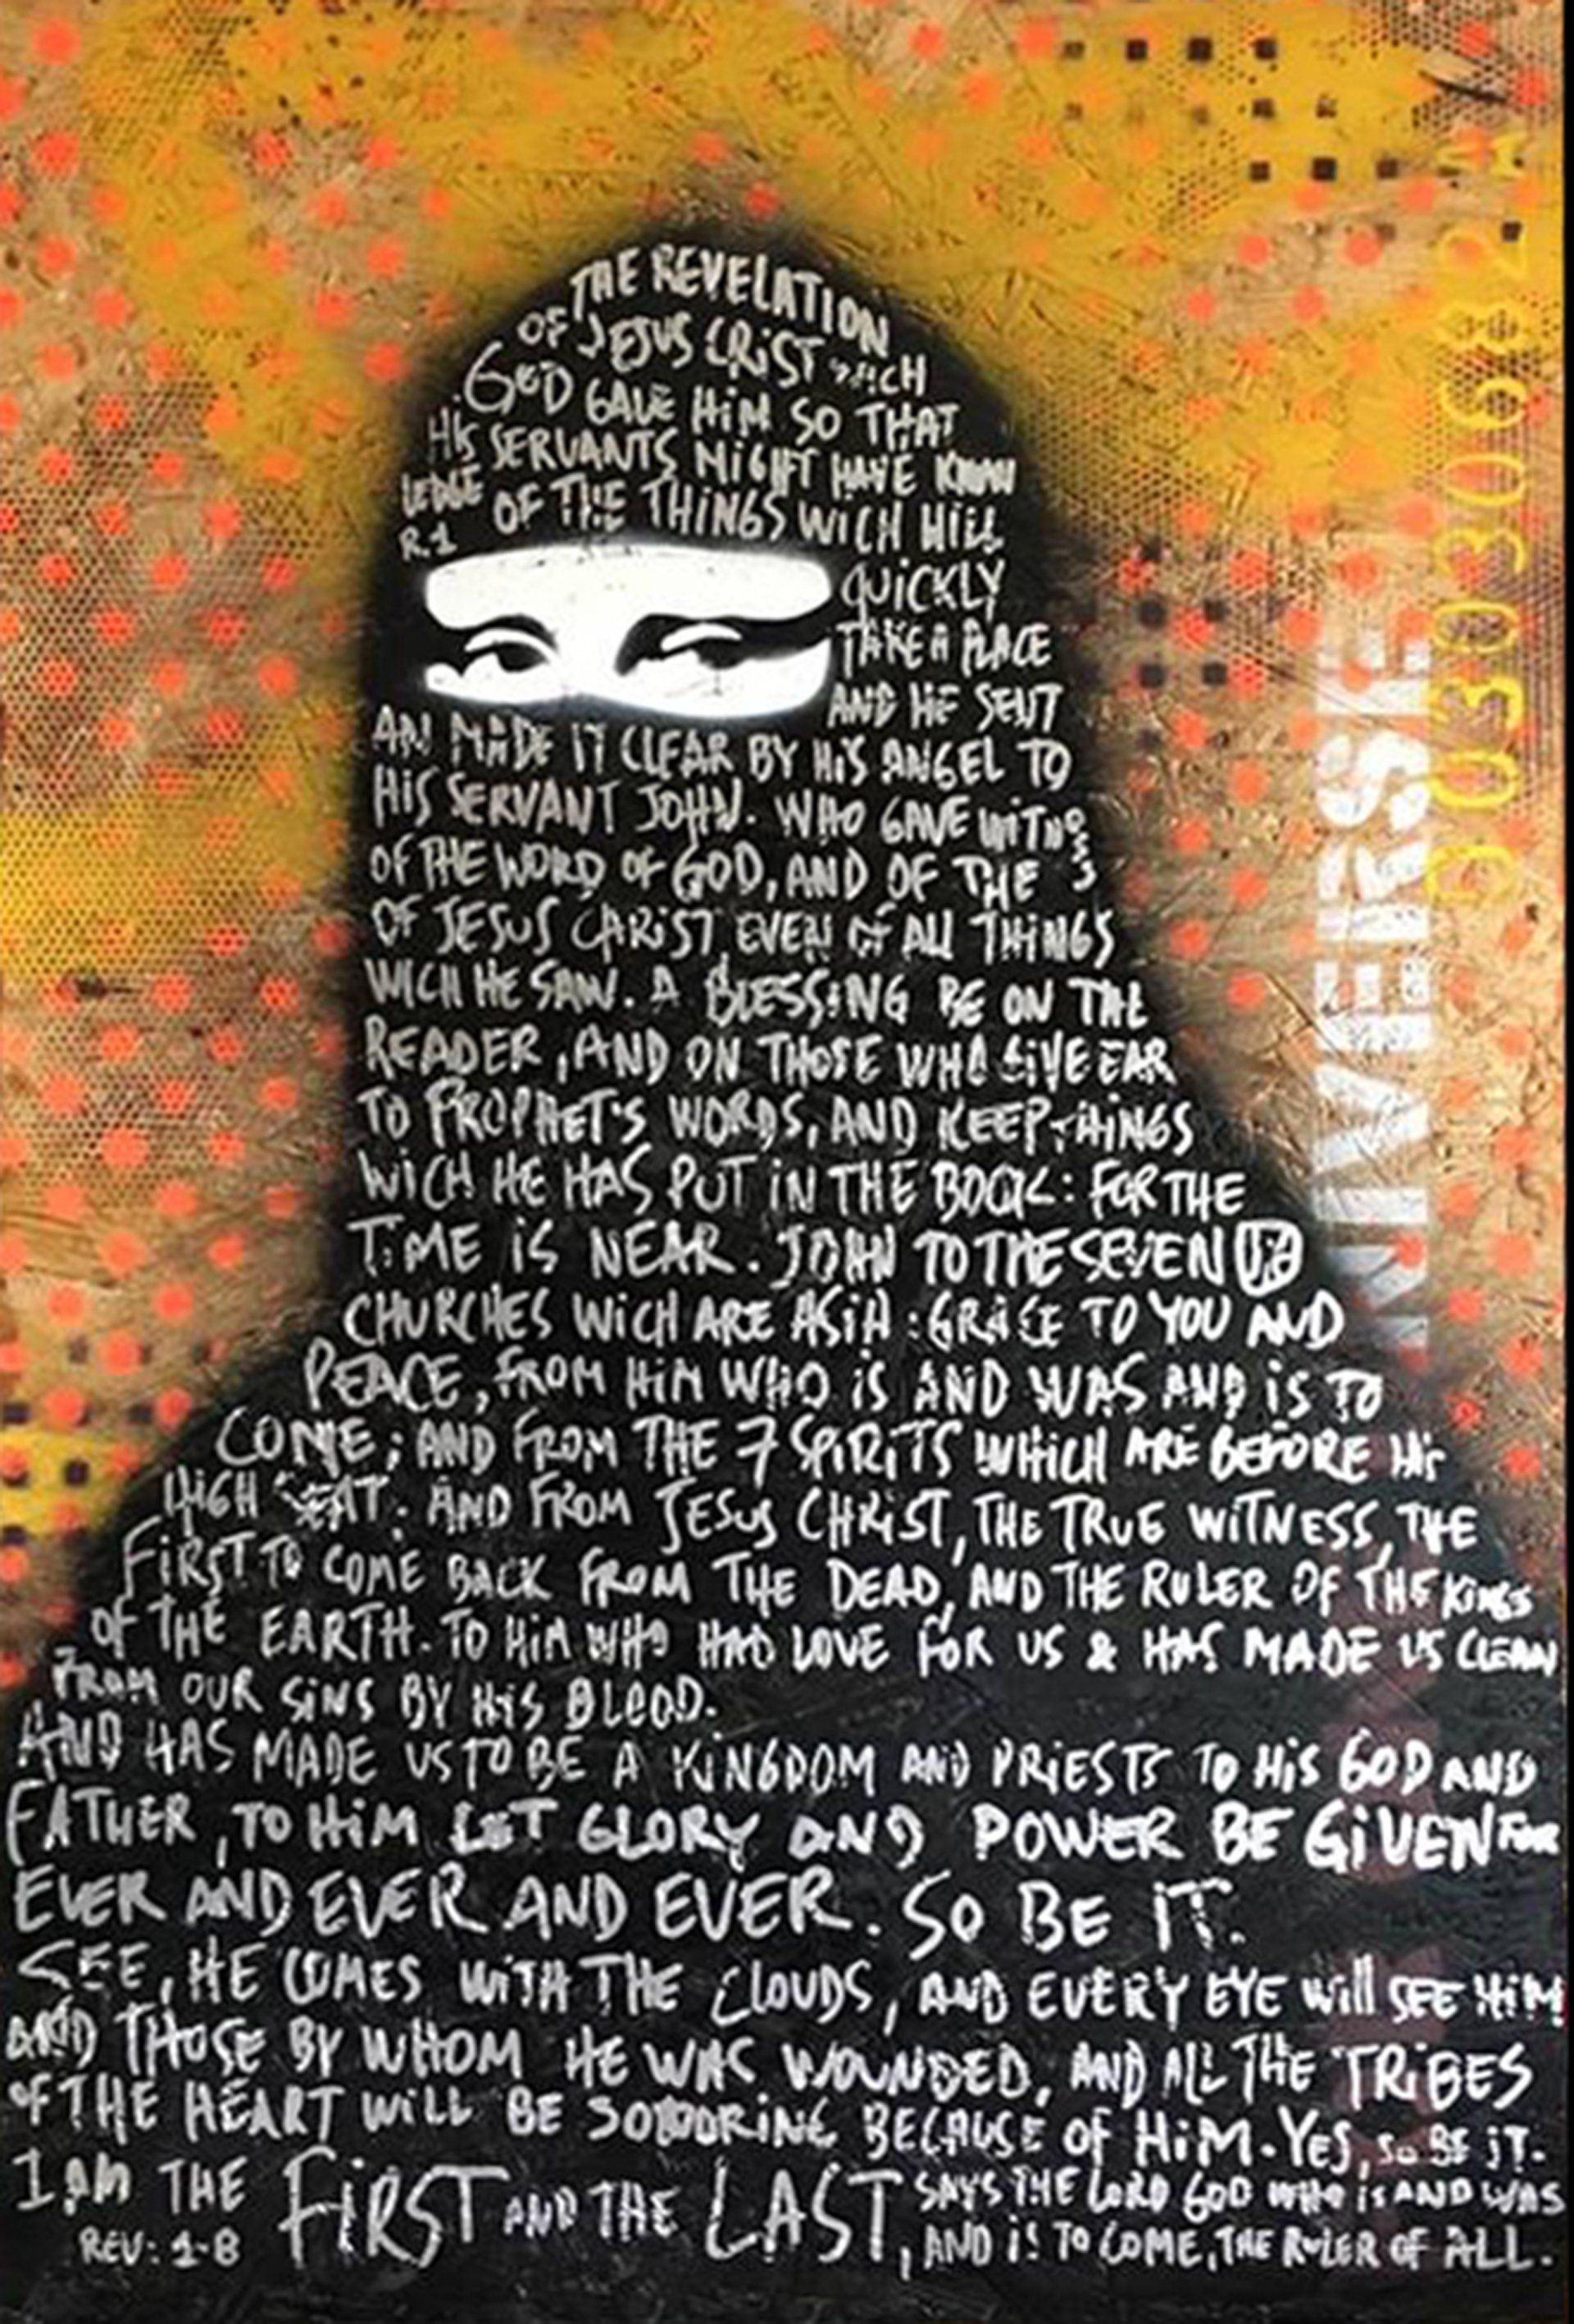 THE REVELATION
OF JESUS CRIST WHICH
GOD GAVE HIM SO THAT
HIS SERVANTS MIGHT HAVE KNOW
LEDGE OF THE THINGS WICH WILL
R.1
QUICKLY
TAKE A PLACE
AND HE SENT
AN MADE IT CLEAR BY HIS ANGEL TO
HIS SERVANT JOHN. WHO GAVE WITNESS
OF THE WORD OF GOD, AND OF THE
OF JESUS CHRIST EVEN OF ALL THINGS
WICH HE SAW. A BLESSING BE ON THE
READER, AND ON THOSE WHO GIVE EAR
TO PROPHET'S WORDS, AND KEEP THINGS
WICH HE HAS PUT IN THE BOOK: FOR THE
TIME IS NEAR. JOHN TO THE SEVEN
CHURCHES WICH ARE ASIA: GRACE TO YOU AND
PEACE, FROM HIM WHO IS AND WAS AND IS TO
COME; AND FROM THE 7 SPIRITS WHICH ARE BEFORE HIS
HIGH SEAT: AND FROM JESUS CHRIST, THE TRUE WITNESS, THE
FIRST TO COME BACK FROM THE DEAD, AND THE RULER OF THE KINGS
OF THE EARTH. TO HIM WHO HAD LOVE FOR US & HAS MADE US CLEAN
FROM OUR SINS BY HIS BLOOD.
AND HAS MADE US TO BE A KINGDOM AND PRIESTS TO HIS GOD AND
FATHER, TO HIM LET GLORY AND POWER BE GIVEN FOR
EVER AND EVER AND EVER. SO BE IT.
SEE, HE COMES WITH THE CLOUDS, AND EVERY EYE WILL SEE HIM
AND THOSE BY WHOM HE WAS WOUNDED, AND ALL THE TRIBES
OF THE HEART WILL BE SORRORING BECAUSE OF HIM. YES, SO BE IT.
I AM THE FIRST AND THE LAST, SAYS THE LORD GOD WHO IS AND WAS
AND IS TO COME, THE RULER OF ALL.
REV: 1-8